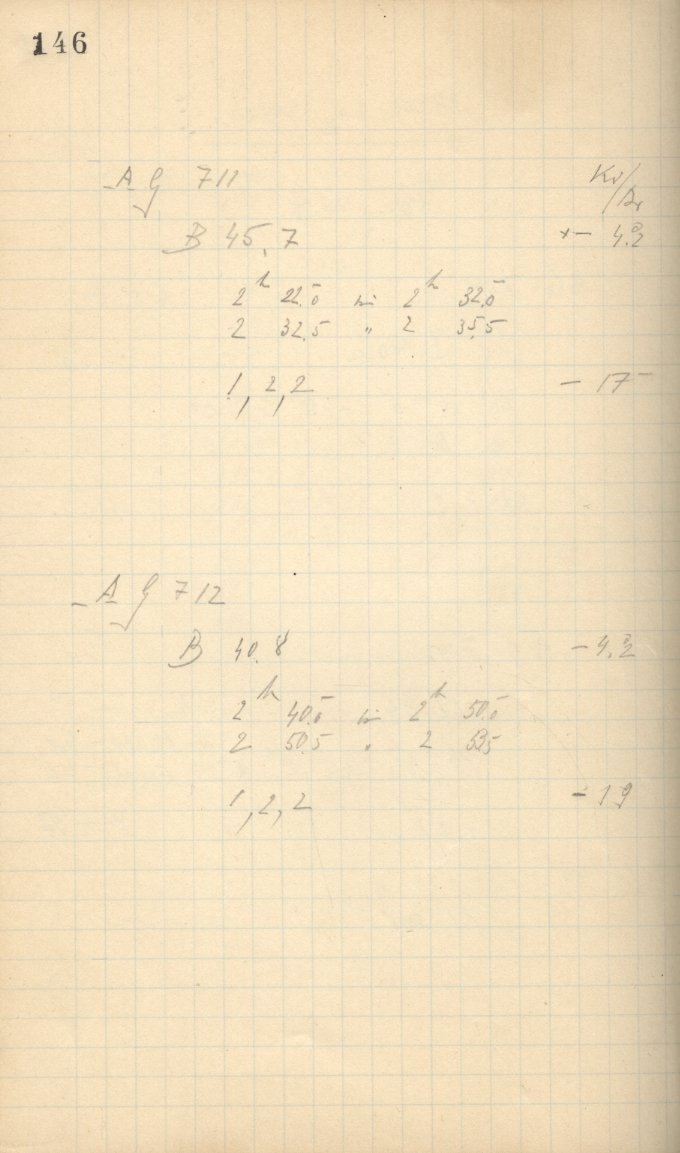 146
A G 711
B 45,7 – 4.2
2h 22.0 bis 2h 32.0
2 32.5 " 2 35.5
1, 2, 2 – 17
– A G 712
B 40.8 – 4.2
2h 40.0 bis 2h 50.0
2 50.5 " 2 53.5
1, 2, 2 – 19